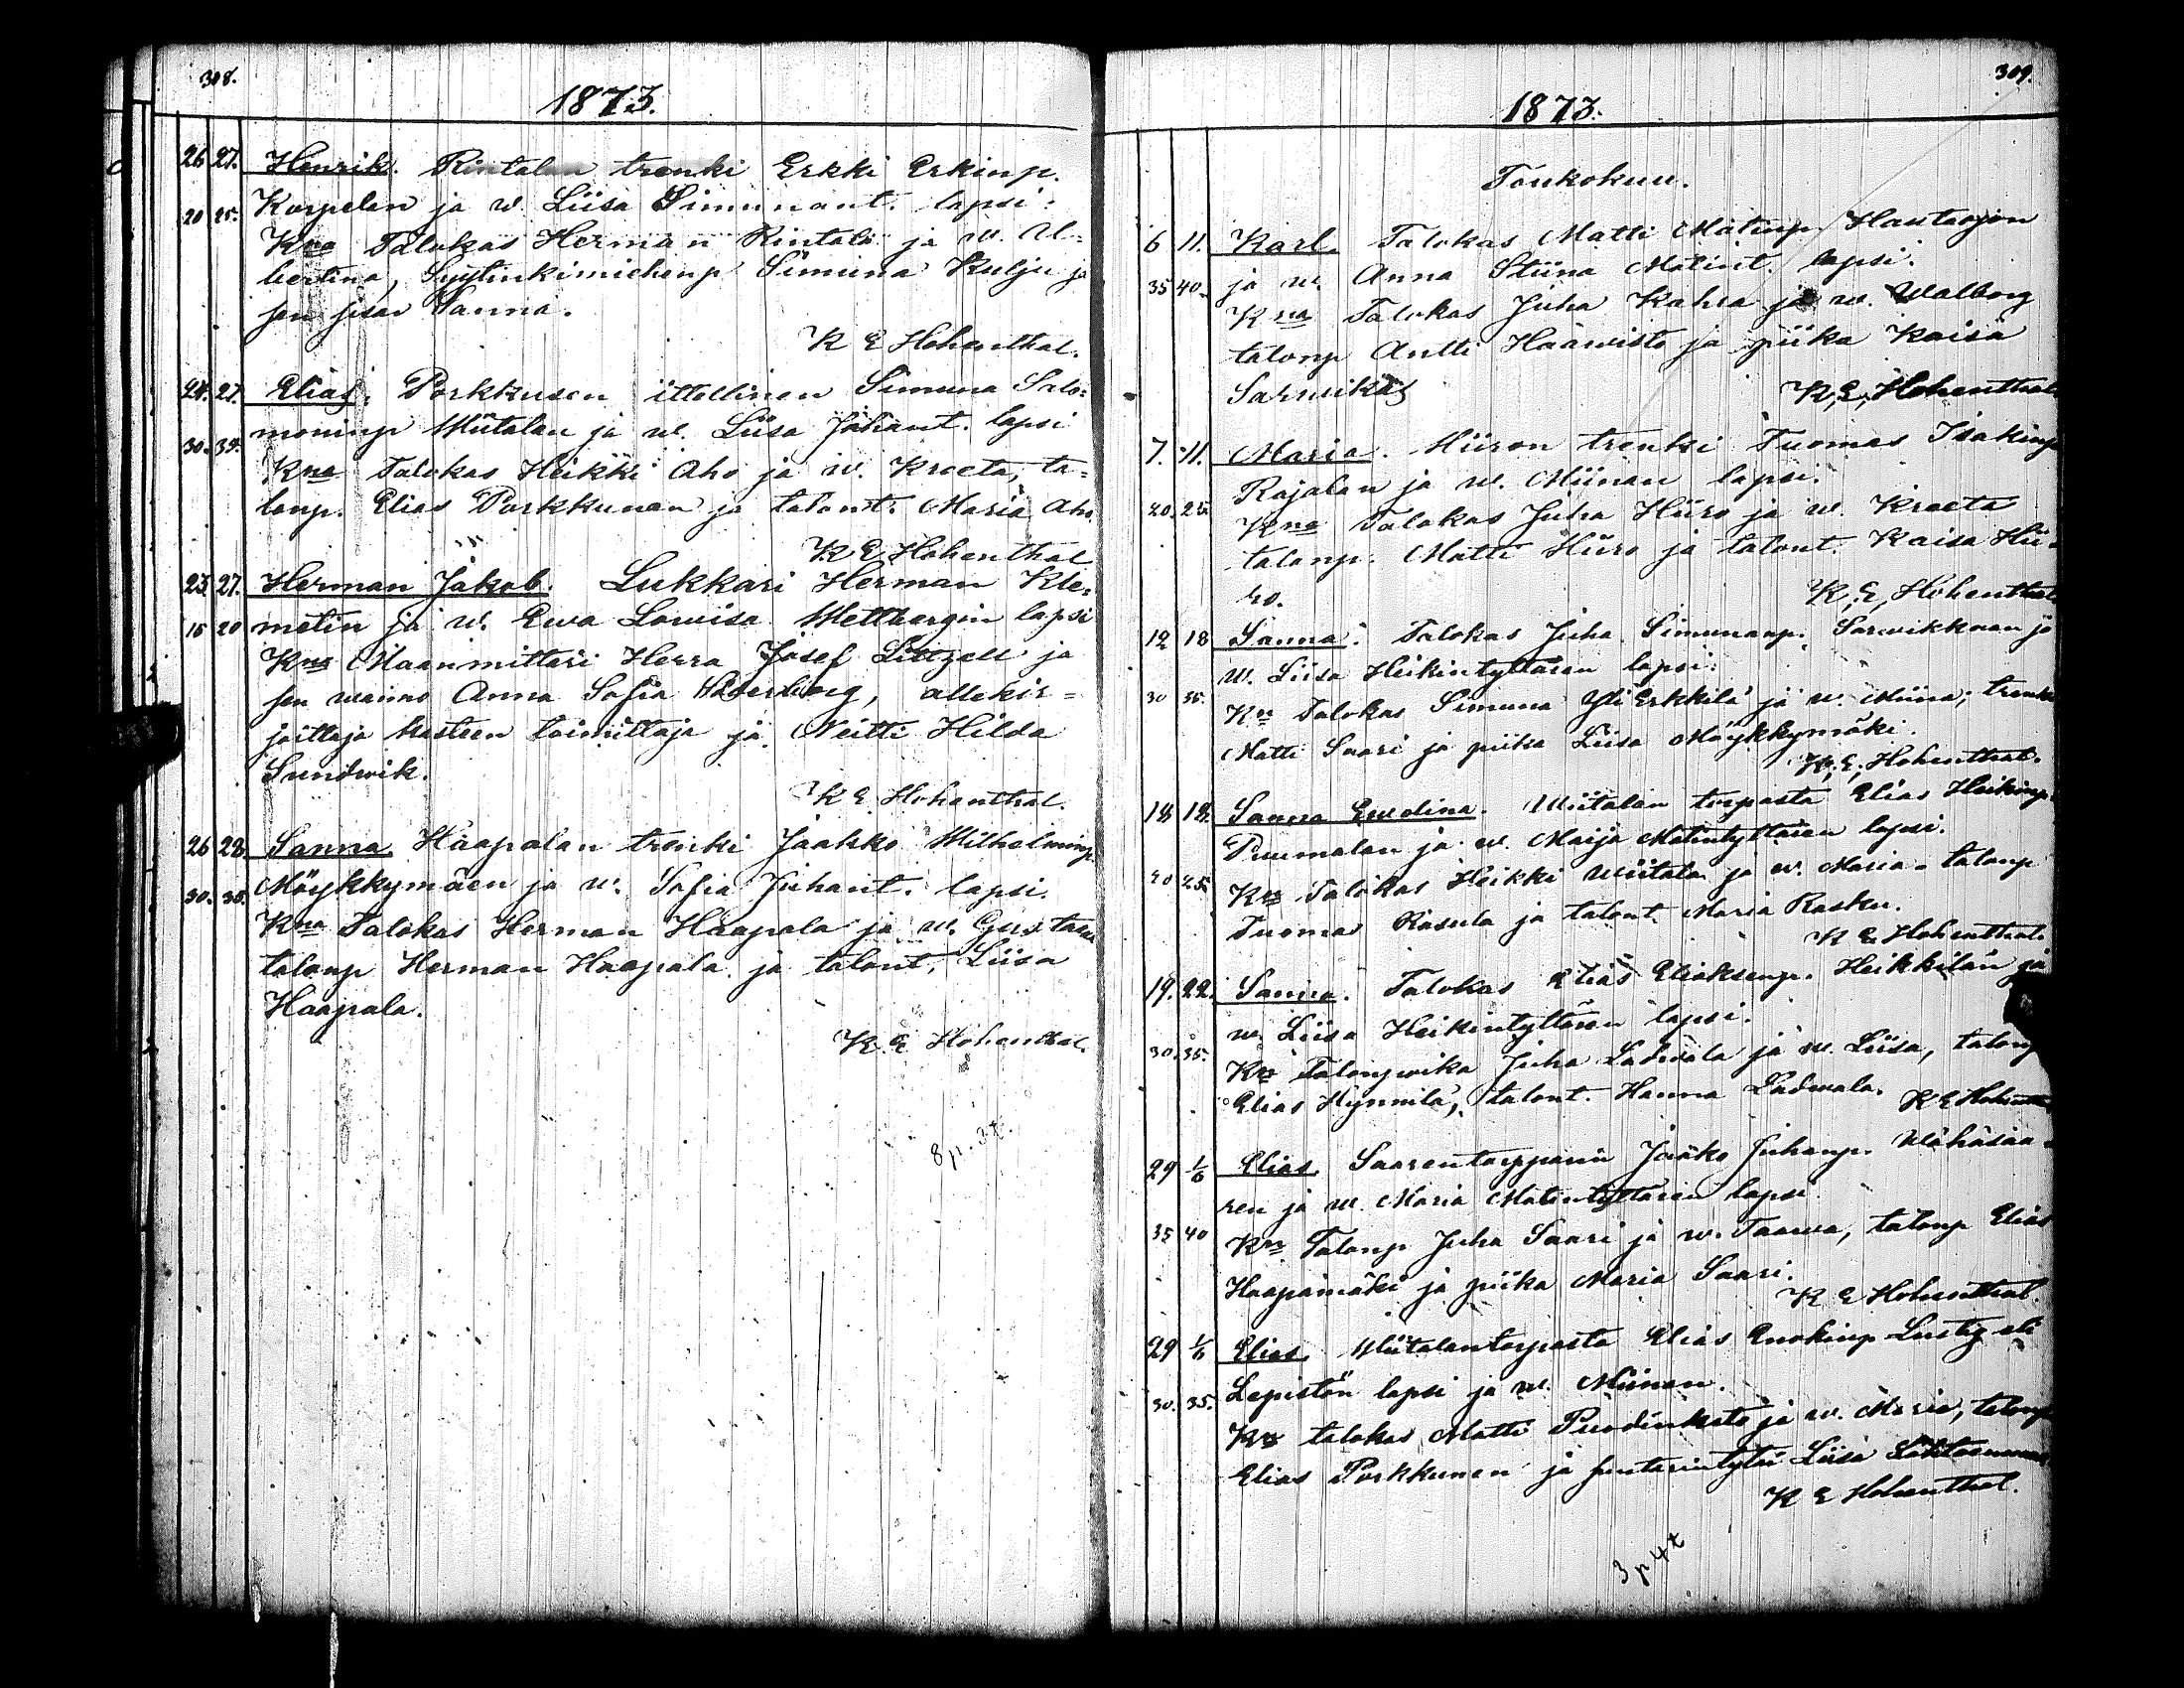 308.
1873.
26 27. Henrik. Rintalan trenki Erkki Erkinp.
20 25. Korpelan ja w. Liisa Simunant. lapsi.
Kna Talokas Herman Rintala ja w. Al-
bertina, Syytinkimiehenp Simuna Kulju ja
sen sisar Sanna.
K E Hohenthal.
24. 27. Elias. Porkkusen ittellinen Simuna Salo-
30. 35. moninp Wiitalan ja w. Liisa Juhant. lapsi
Kna Talokas Heikki Aho ja w. Kreeta, ta-
lonp. Elias Porkkunen ja talont. Maria Aho.
K E Hohenthal
23. 27. Herman Jakob. Lukkari Herman Kle-
15 20 metin ja w. Ewa Lowisa Wettbergin lapsi
Kna Maanmittari Herra Josef Littzell ja
sen waimo Anna Sofia, allekir-
joittaja kasteen toimittaja ja Neitti Hilda
Sundwik.
K E Hohenthal.
26 28 Sanna. Haapalan trenki Jaakko Wilhelminp.
30. 35. Möykkymäen ja w. Sofia Juhant. lapsi.
Kna Talokas Herman Haapala ja w. Gustawa
talonp Herman Haapala ja talont. Liisa
Haapala.
K. E Hohenthal.
8 p. 3 t.
309.
1873.
Toukokuu.
6 11. Karl. Talokas Matti Matinp Hautaojan
35 40. ja w. Anna Stiina Matint. lapsi.
Kna Talokas Juha Kahra ja w. Walborg
talonp Antti Haawisto ja piika Kaisa
Sarwikas
K, E, Hohenthal
7. 11. Maria. Hiiron trenki Tuomas Isakinp
Rajalan ja w. Miinan lapsi.
20. 25. Kna Talokas Juha Hiiro ja w. Kreeta
talonp. Matti Hiiro ja talont. Kaisa Hii-
ro.
K, E, Hohenthal
12 18 Sanna. Talokas Juha Simunanp. Sarwikkaan ja
w. Liisa Heikintyttären lapsi.
30 35. Kna Talokas Simuna Yli Erkkilä ja w. Miina, trenki
Matti Saari ja piika Liisa Möykkymäki.
K, E, Hohenthal.
18. 18. Sanna Ewelina. Wiitalan torpasta Elias Heikinp.
Puumalan ja w. Maija Matintyttären lapsi.
20 25. Kna Talokas Heikki Wiitala ja w. Maria - talonp
Tuomas Rasula ja talont. Maria Rasku.
K E Hohenthal.
19. 22. Sanna. Talokas Elias Eliaksenp. Heikkilän ja
w. Liisa Heikintyttären lapsi.
30. 35. Kna Talonpoika Juha Ladwala ja w. Liisa, talonp
Elias Hynnilä, talont. Hanna Ladwala.
K E Hohenthal
29 1/6 Elias. Saarentorpparin Jaako Juhanp. Wähäsaa-
ren ja w. Maria Matintyttären lapsi
35 40 Kna Talonp Juha Saari ja w. Taawa, talonp Elias
Haapamäki ja piika Maria Saari.
K E Hohenthal.
29 1/6 Elias. Wiitalantorpasta Elias Enokinp Lustig eli
30. 35. Lepistön lapsi ja w. Miinan.
Kna talokas Matti Puodinketo ja w. Maria, talonp
Elias Porkkunen ja suutarintytär Liisa
K E Hohenthal.
3 p 4 t